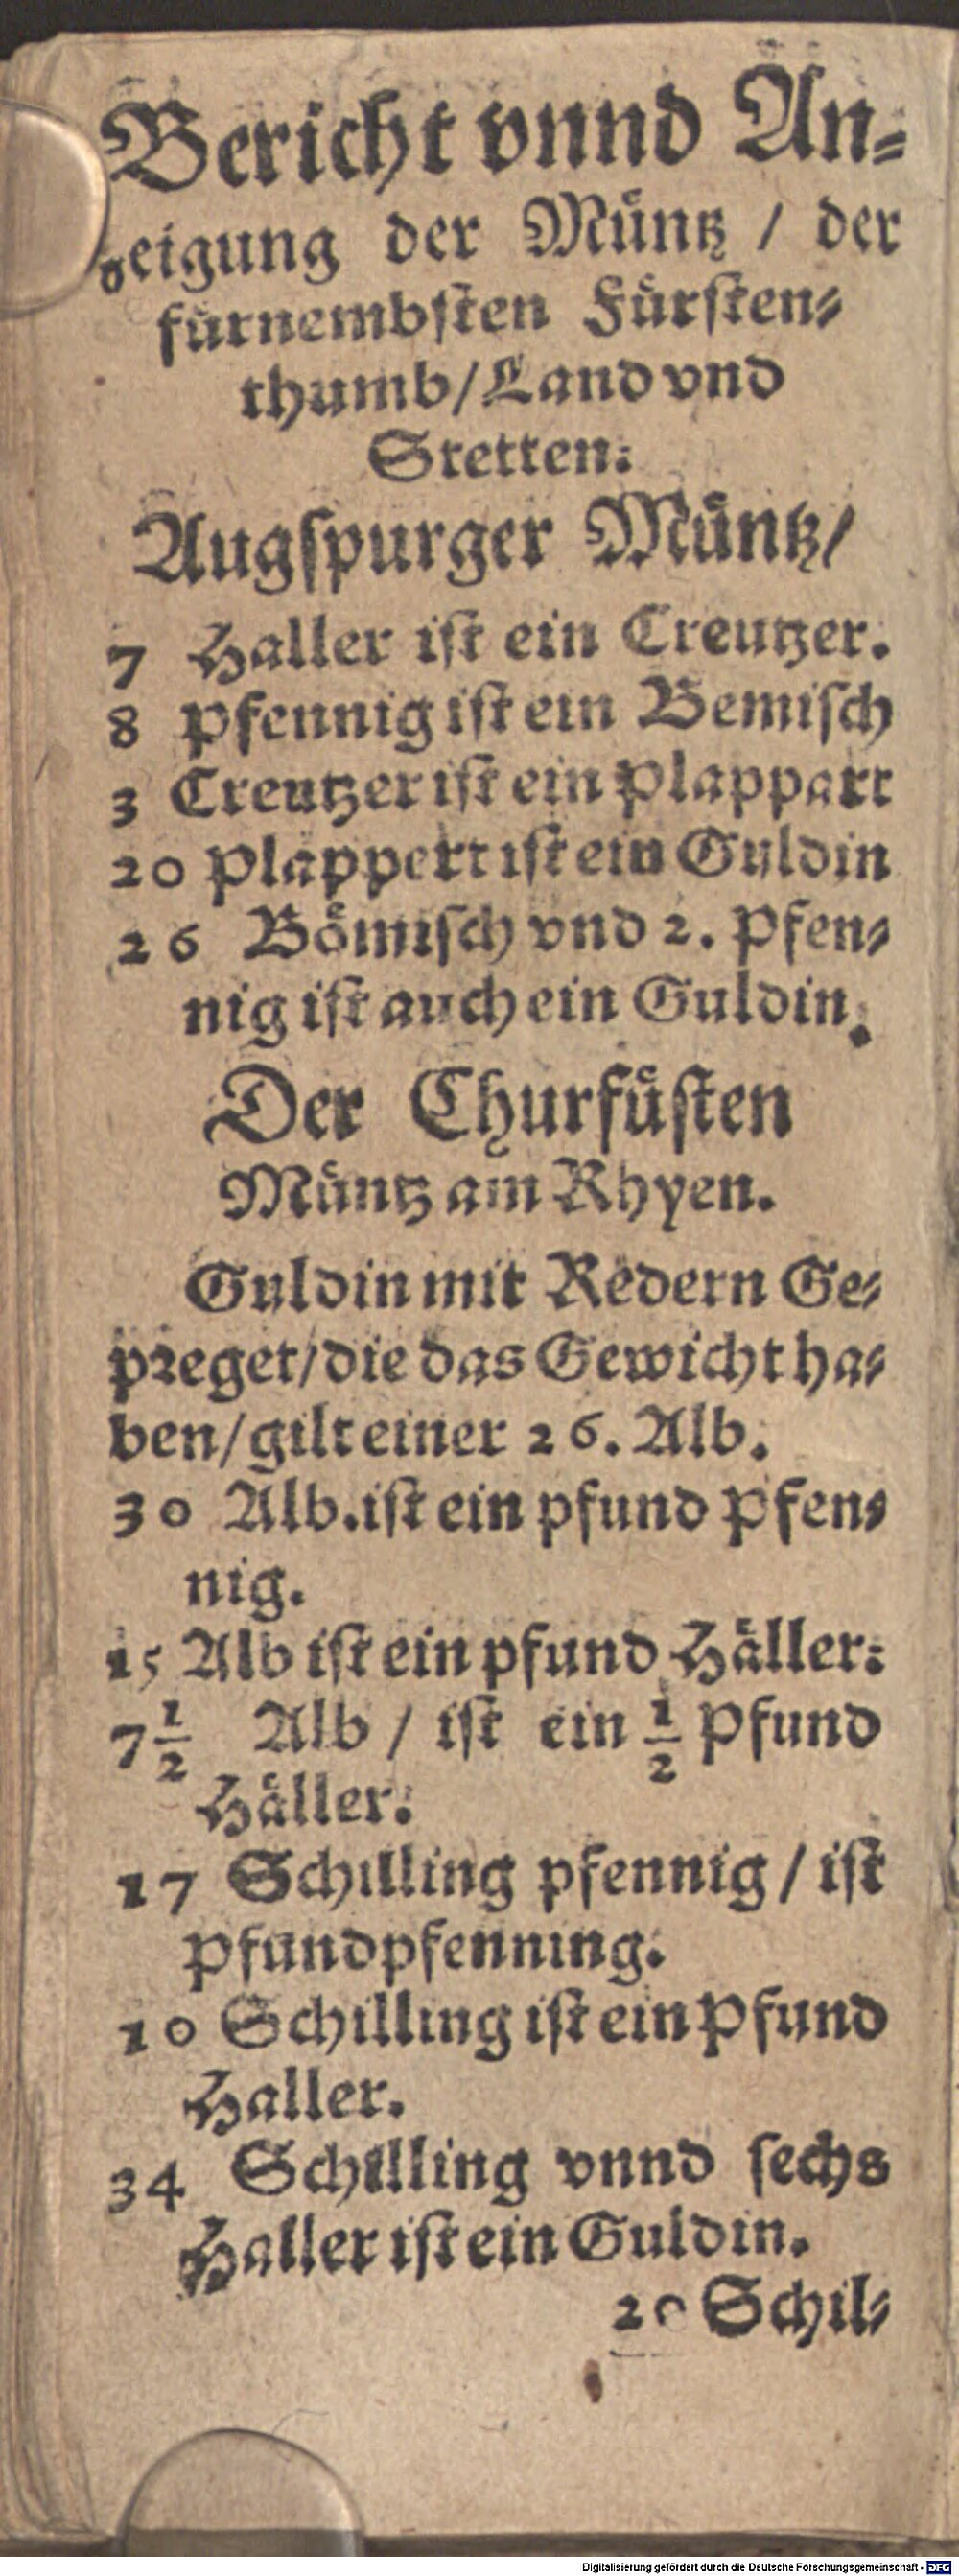 Bericht vnnd An-
zeigung der Müntz / der
fürnembsten Fürsten-
thumb/Land vnd
Stetten:
Augspurger Müntz/
7 Haller ist ein Creutzer.
8 Pfennig ist ein Bemisch
3 Creutzer ist ein Plappart
20 Plappert ist ein Guldin
26 Bömisch vnd 2. Pfen-
nig ist auch ein Guldin.
Der Churfüsten
Müntz am Rhyen.
Guldin mit Redern Ge-
preget/die das Gewicht ha-
ben/gilt einer 26. Alb.
30 Alb.ist ein pfund Pfen-
nig.
15 Alb ist ein pfund Häller:
7 1/2 Alb / ist ein 1/2 Pfund
Häller:
17 Schilling pfennig / ist
Pfundpfenning.
10 Schilling ist ein Pfund
Haller.
34 Schilling vnnd sechs
Haller ist ein Guldin.
20 Schil-
Digitalisierung gefördert durch die Deutsche Forschungsgemeinschaft - DFG